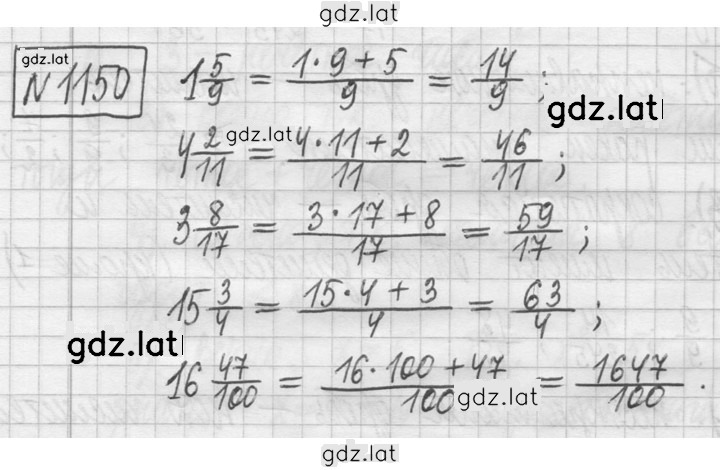 gdz.lat
gdz.lat
№1150
1 5/9 = (1·9+5)/9 = 14/9 ;
gdz.lat
4 2/11 = (4·11+2)/11 = 46/11 ;
gdz.lat
3 8/17 = (3·17+8)/17 = 59/17 ;
15 3/4 = (15·4+3)/4 = 63/4 ;
gdz.lat
16 47/100 = (16·100+47)/100 = 1647/100 .
gdz.lat
gdz.lat